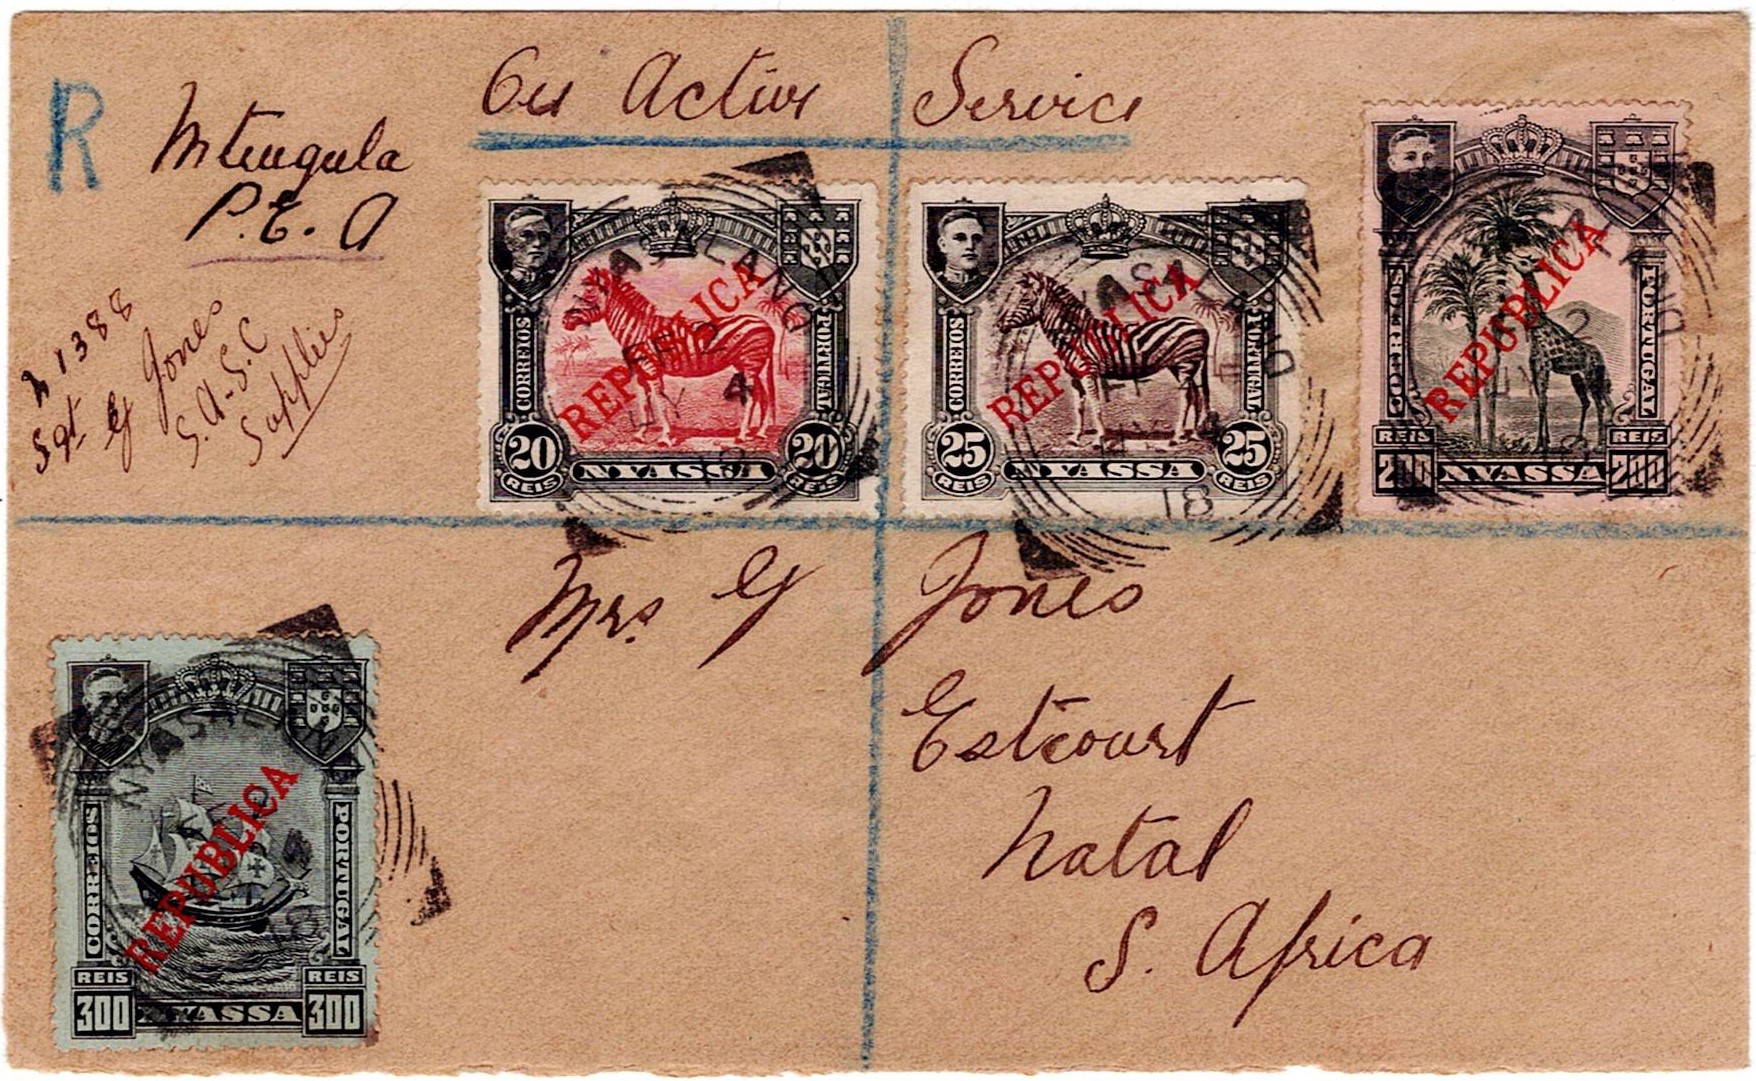 R
On Active Service
Mtengula
P.E.A
1388
Sgt G Jones
S.A.S.C
Supplies
CORREIOS
PORTUGAL
REPUBLICA
20 20
REIS NYASSA REIS
NYASALAND
F.P.O 2
JY 4
18
CORREIOS
PORTUGAL
REPUBLICA
25 25
REIS NYASSA REIS
NYASALAND
18
CORREIOS
PORTUGAL
REPUBLICA
REIS REIS
200 NYASSA 200
2
JY
Mrs. G Jones
Estcourt
Natal
S. Africa
CORREIOS
PORTUGAL
REPUBLICA
REIS REIS
300 NYASSA 300
18